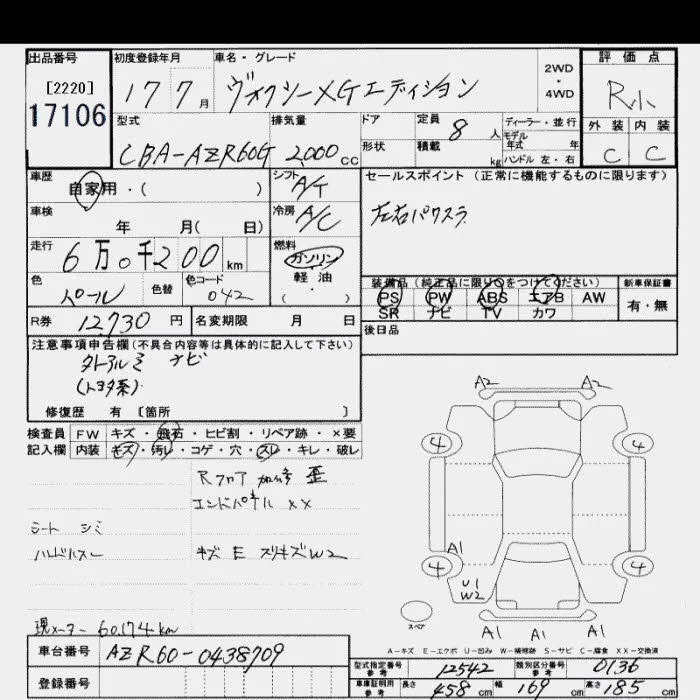 出品番号
[2220]
17106
初度登録年月
17 7 月
車名・グレード
ヴォクシーXGエディション
2WD
・
4WD
評価点
R小
外装 内装
C C
型式
CBA-AZR60G
排気量
2,000 cc
ドア
形状
定員
8 人
積載
kg
ディーラー・並行
モデル
年式 年
ハンドル 左・右
車歴
自家用・( )
シフト
A/T
セールスポイント(正常に機能するものに限ります)
左右パワスラ
車検
年 月( 日)
冷房
A/C
走行
6万0千200 km
燃料
ガソリン
軽油
( )
色
パール
色替
色コード
042
装備品(純正品に限り○をつけてください)
PS PW ABS エアB AW
SR ナビ TV カワ
新車保証書
有・無
R券 12,730 円
名変期限 月 日
後日品
注意事項申告欄(不具合内容等は具体的に記入して下さい)
ナビ
(トヨタ系)
修復歴 有 [箇所 ]
検査員
記入欄
FW キズ・飛石・ヒビ割・リペア跡・×要
内装 キズ・汚レ・コゲ・穴・スレ・キレ・破レ
Rフロア 加修 歪
エンドパネル XX
シート シミ
キズ E スリキズW2
現メーター 60,174 km
A2 A2
4 4
A1
4 4
U1
W2
スペア
A1 A1 A1
A-キズ E-エクボ U-凹み W-補修跡 S-サビ C-腐食 XX-交換済
車台番号
AZR60-0438709
登録番号
型式指定番号
参考
12542
類別区分番号
参考
0136
車庫証明用
参考
長さ 458 cm 幅 169 cm 高さ 185 cm